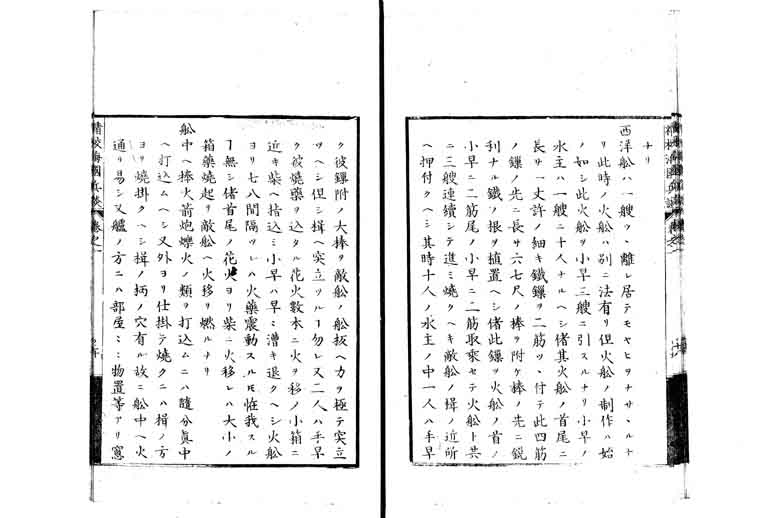 ナリ
西洋舩ハ一艘ツヽ離レ居テモヤヒヲナサヽルナ
リ此時ノ火舩ハ別ニ法有リ但火舩ノ制作ハ始
ノ如シ此火舩ヲ小早三艘ニ引スルナリ小早ノ
水主ハ一艘ニ十人ナルヘシ偖其火舩ノ首尾ニ
長サ一丈許ノ細キ鐵鏁ヲ二筋ツヽ付テ此四筋
ノ鏁ノ先ニ長サ六七尺ノ棒ヲ附ケ棒ノ先ニ鋭
利ナル鐵ノ根ヲ植置ヘシ偖此鏁ヲ火舩ノ首ノ
小早ニ二筋尾ノ小早ニ二筋取乘セテ火舩ト共
ニ三艘連續シテ進ミ燒クヘキ敵舩ノ楫ノ近所
ヘ押付クヘシ其時十人ノ水主ノ中一人ハ手早
ク彼鏁附ノ大棒ヲ敵舩ノ舩板ヘ力ヲ極テ突立
ツヘシ但シ揖ヘ突立ツルヿ勿レ又二人ハ手早
ク彼燒藥ヲ込タル花火數本ニ火ヲ移ノ小箱ニ
近キ柴ヘ捨込ミ小早ハ早ミ漕キ退クヘシ火舩
ヨリ七八間隔ツレハ火藥震動スルモ恠我スル
ヿ無シ偖首尾ノ花火ヨリ柴ニ火移レハ大小ノ
箱藥燒起リ敵舩ヘ火移リ燃ルナリ
舩中ヘ捧火箭炮爍火ノ類ヲ打込ムニハ隨分眞中
ヘ打込ムヘシ又外ヨリ仕掛テ燒クニハ揖ノ方
ヨリ燒掛クヘシ揖ノ柄ノ穴有ル故ニ舩中ヘ火
通リ易シ又艫ノ方ニハ部屋ミミ物置等アリ窻
精校海國兵談 卷之一